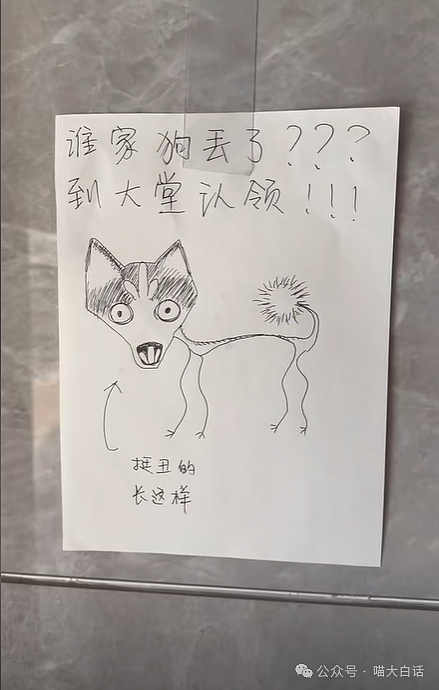 谁家狗丢了???
到大堂认领!!!
挺丑的
长这样
公众号·喵大白话